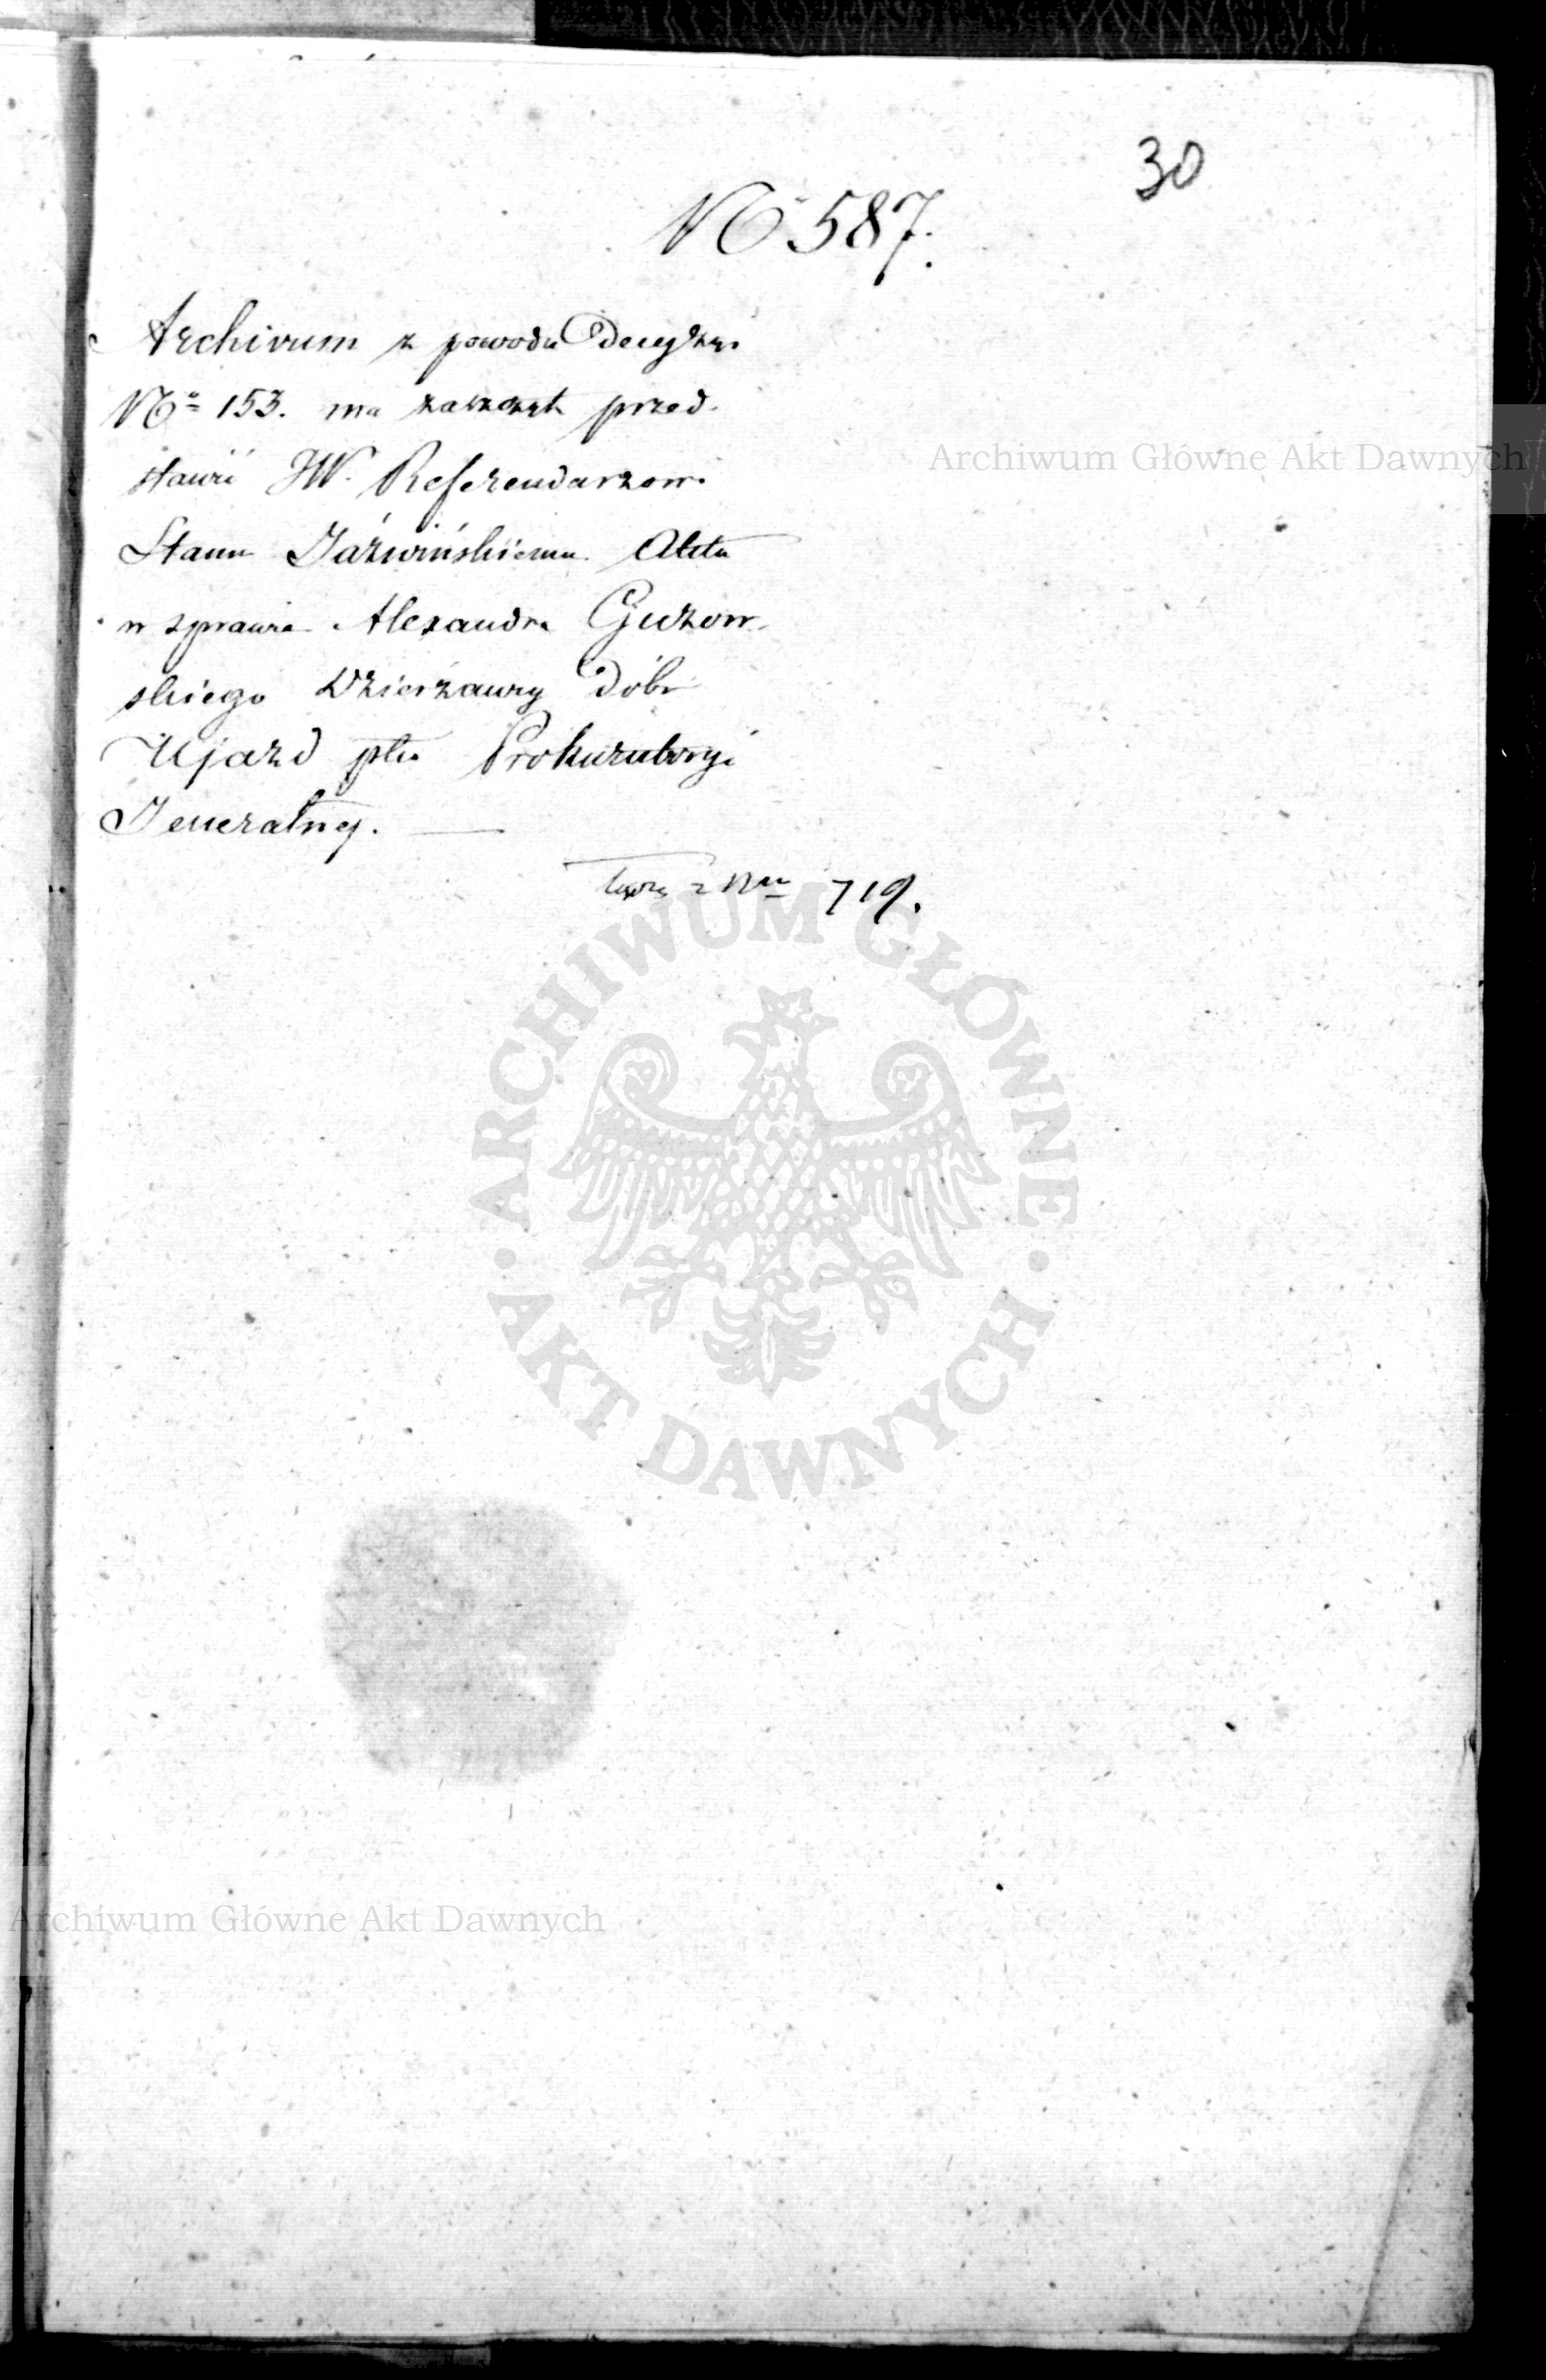 30
No 587.
Archivum z powodu Decyzyi
No 153. ma zaszczyt przed-
stawić JW. Referendarzowi
Stanu Jaźwińskiemu Akta
w sprawie Alexandra Guzow-
skiego Dzierżawcy Dóbr
Ujazd pko Prokuratoryi
Jeneralney.
łączy z Nrem 719.
Archiwum Główne Akt Dawnych
ARCHIWUM GŁÓWNE
AKT DAWNYCH
Archiwum Główne Akt Dawnych